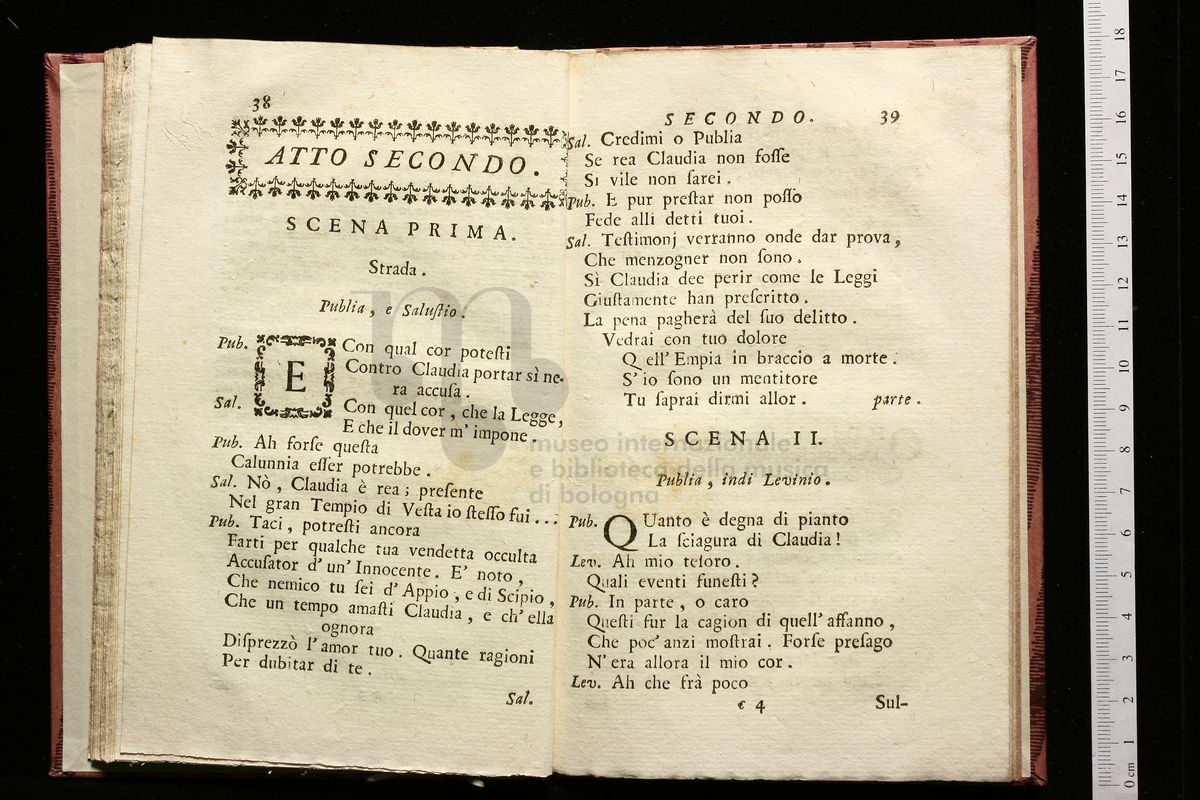 38
ATTO SECONDO.
SCENA PRIMA.
Strada.
Publia, e Saluſtio.
Pub. E Con qual cor poteſti
Contro Claudia portar sì ne-
ra accuſa.
Sal. Con quel cor, che la Legge,
E che il dover m' impone.
Pub. Ah forſe queſta
Calunnia eſſer potrebbe.
Sal. Nò, Claudia è rea; preſente
Nel gran Tempio di Veſta io ſteſſo fui...
Pub. Taci, potreſti ancora
Farti per qualche tua vendetta occulta
Accuſator d' un' Innocente. E' noto,
Che nemico tu ſei d' Appio, e di Scipio,
Che un tempo amaſti Claudia, e ch' ella
ognora
Diſprezzò l' amor tuo. Quante ragioni
Per dubitar di te.
Sal.
SECONDO. 39
Sal. Credimi o Publia
Se rea Claudia non foſſe
Si vile non ſarei.
Pub. E pur preſtar non poſſo
Fede alli detti tuoi.
Sal. Teſtimonj verranno onde dar prova,
Che menzogner non ſono.
Sì Claudia dee perir come le Leggi
Giuſtamente han preſcritto.
La pena pagherà del ſuo delitto.
Vedrai con tuo dolore
Q ell' Empia in braccio a morte.
S' io ſono un mentitore
Tu ſaprai dirmi allor. parte.
SCENA II.
Publia, indi Levinio.
Pub. QUanto è degna di pianto
La ſciagura di Claudia!
Lev. Ah mio teſoro.
Quali eventi funeſti?
Pub. In parte, o caro
Queſti fur la cagion di quell' affanno,
Che poc' anzi moſtrai. Forſe preſago
N' era allora il mio cor.
Lev. Ah che frà poco
c 4 Sul-
museo internazionale
e biblioteca della musica
di bologna
0 cm 1 2 3 4 5 6 7 8 9 10 11 12 13 14 15 16 17 18